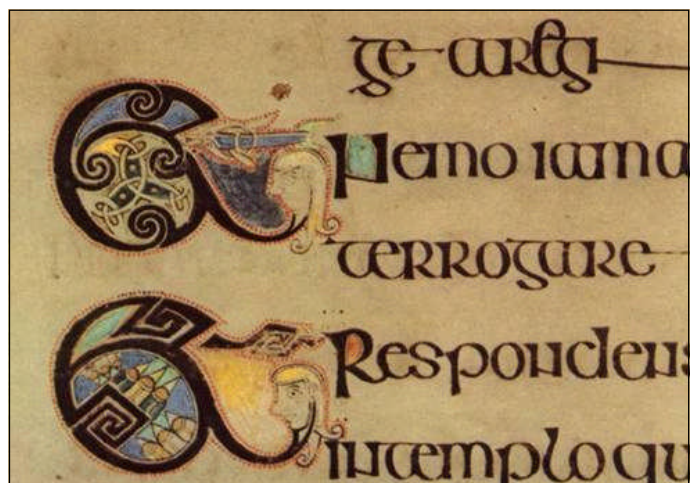 ge a reg
Et nemo iam a
terrogare
Et Respondens
in templo qu